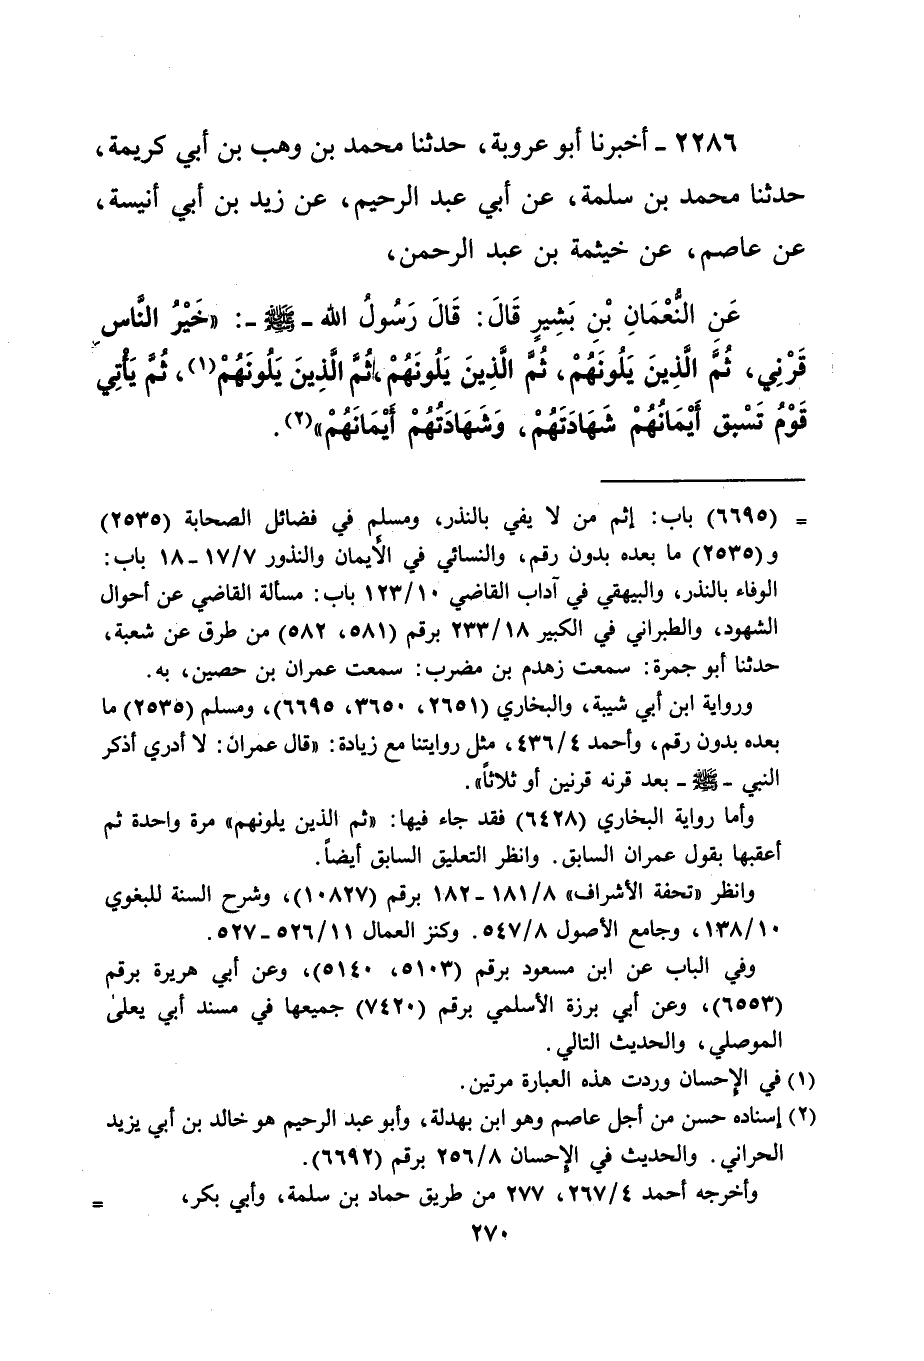 ٢٢٨٦ - أخبرنا أبو عروبة، حدثنا محمد بن وهب بن أبي كريمة،
حدثنا محمد بن سلمة، عن أبي عبد الرحيم، عن زيد بن أبي أنيسة،
عن عاصم، عن خيثمة بن عبد الرحمن،
عَنِ النُّعْمَانِ بْنِ بَشِيرٍ قَالَ: قَالَ رَسُولُ الله - ﷺ -: «خَيْرُ النَّاسِ
قَرْنِي، ثُمَّ الَّذِينَ يَلُونَهُمْ، ثُمَّ الَّذِينَ يَلُونَهُمْ، ثُمَّ الَّذِينَ يَلُونَهُمْ(١)، ثُمَّ يَأْتِي
قَوْمٌ تَسْبِق أَيْمَانُهُمْ شَهَادَتَهُمْ، وَشَهَادَتُهُمْ أَيْمَانَهُمْ»(٢).
= (٦٦٩٥) باب: إثم من لا يفي بالنذر، ومسلم في فضائل الصحابة (٢٥٣٥)
و (٢٥٣٥) ما بعده بدون رقم، والنسائي في الأيمان والنذور ١٧/٧ - ١٨ باب:
الوفاء بالنذر، والبيهقي في آداب القاضي ١٢٣/١٠ باب: مسألة القاضي عن أحوال
الشهود، والطبراني في الكبير ٢٣٣/١٨ برقم (٥٨١، ٥٨٢) من طرق عن شعبة،
حدثنا أبو جمرة: سمعت زهدم بن مضرب: سمعت عمران بن حصين، به.
ورواية ابن أبي شيبة، والبخاري (٢٦٥١، ٣٦٥٠، ٦٦٩٥)، ومسلم (٢٥٣٥) ما
بعده بدون رقم، وأحمد ٤٣٦/٤، مثل روايتنا مع زيادة: «قال عمران: لا أدري أذكر
النبي - ﷺ - بعد قرنه قرنين أو ثلاثاً».
وأما رواية البخاري (٦٤٢٨) فقد جاء فيها: «ثم الذين يلونهم» مرة واحدة ثم
أعقبها بقول عمران السابق. وانظر التعليق السابق أيضاً.
وانظر «تحفة الأشراف» ١٨١/٨ - ١٨٢ برقم (١٠٨٢٧)، وشرح السنة للبغوي
١٣٨/١٠، وجامع الأصول ٥٤٧/٨. وكنز العمال ٥٢٦/١١ - ٥٢٧.
وفي الباب عن ابن مسعود برقم (٥١٠٣، ٥١٤٠)، وعن أبي هريرة برقم
(٦٥٥٣)، وعن أبي برزة الأسلمي برقم (٧٤٢٠) جميعها في مسند أبي يعلىٰ
الموصلي، والحديث التالي.
(١) في الإحسان وردت هذه العبارة مرتين.
(٢) إسناده حسن من أجل عاصم وهو ابن بهدلة، وأبو عبد الرحيم هو خالد بن أبي يزيد
الحراني. والحديث في الإحسان ٢٥٦/٨ برقم (٦٦٩٢).
وأخرجه أحمد ٢٦٧/٤، ٢٧٧ من طريق حماد بن سلمة، وأبي بكر، =
٢٧٠